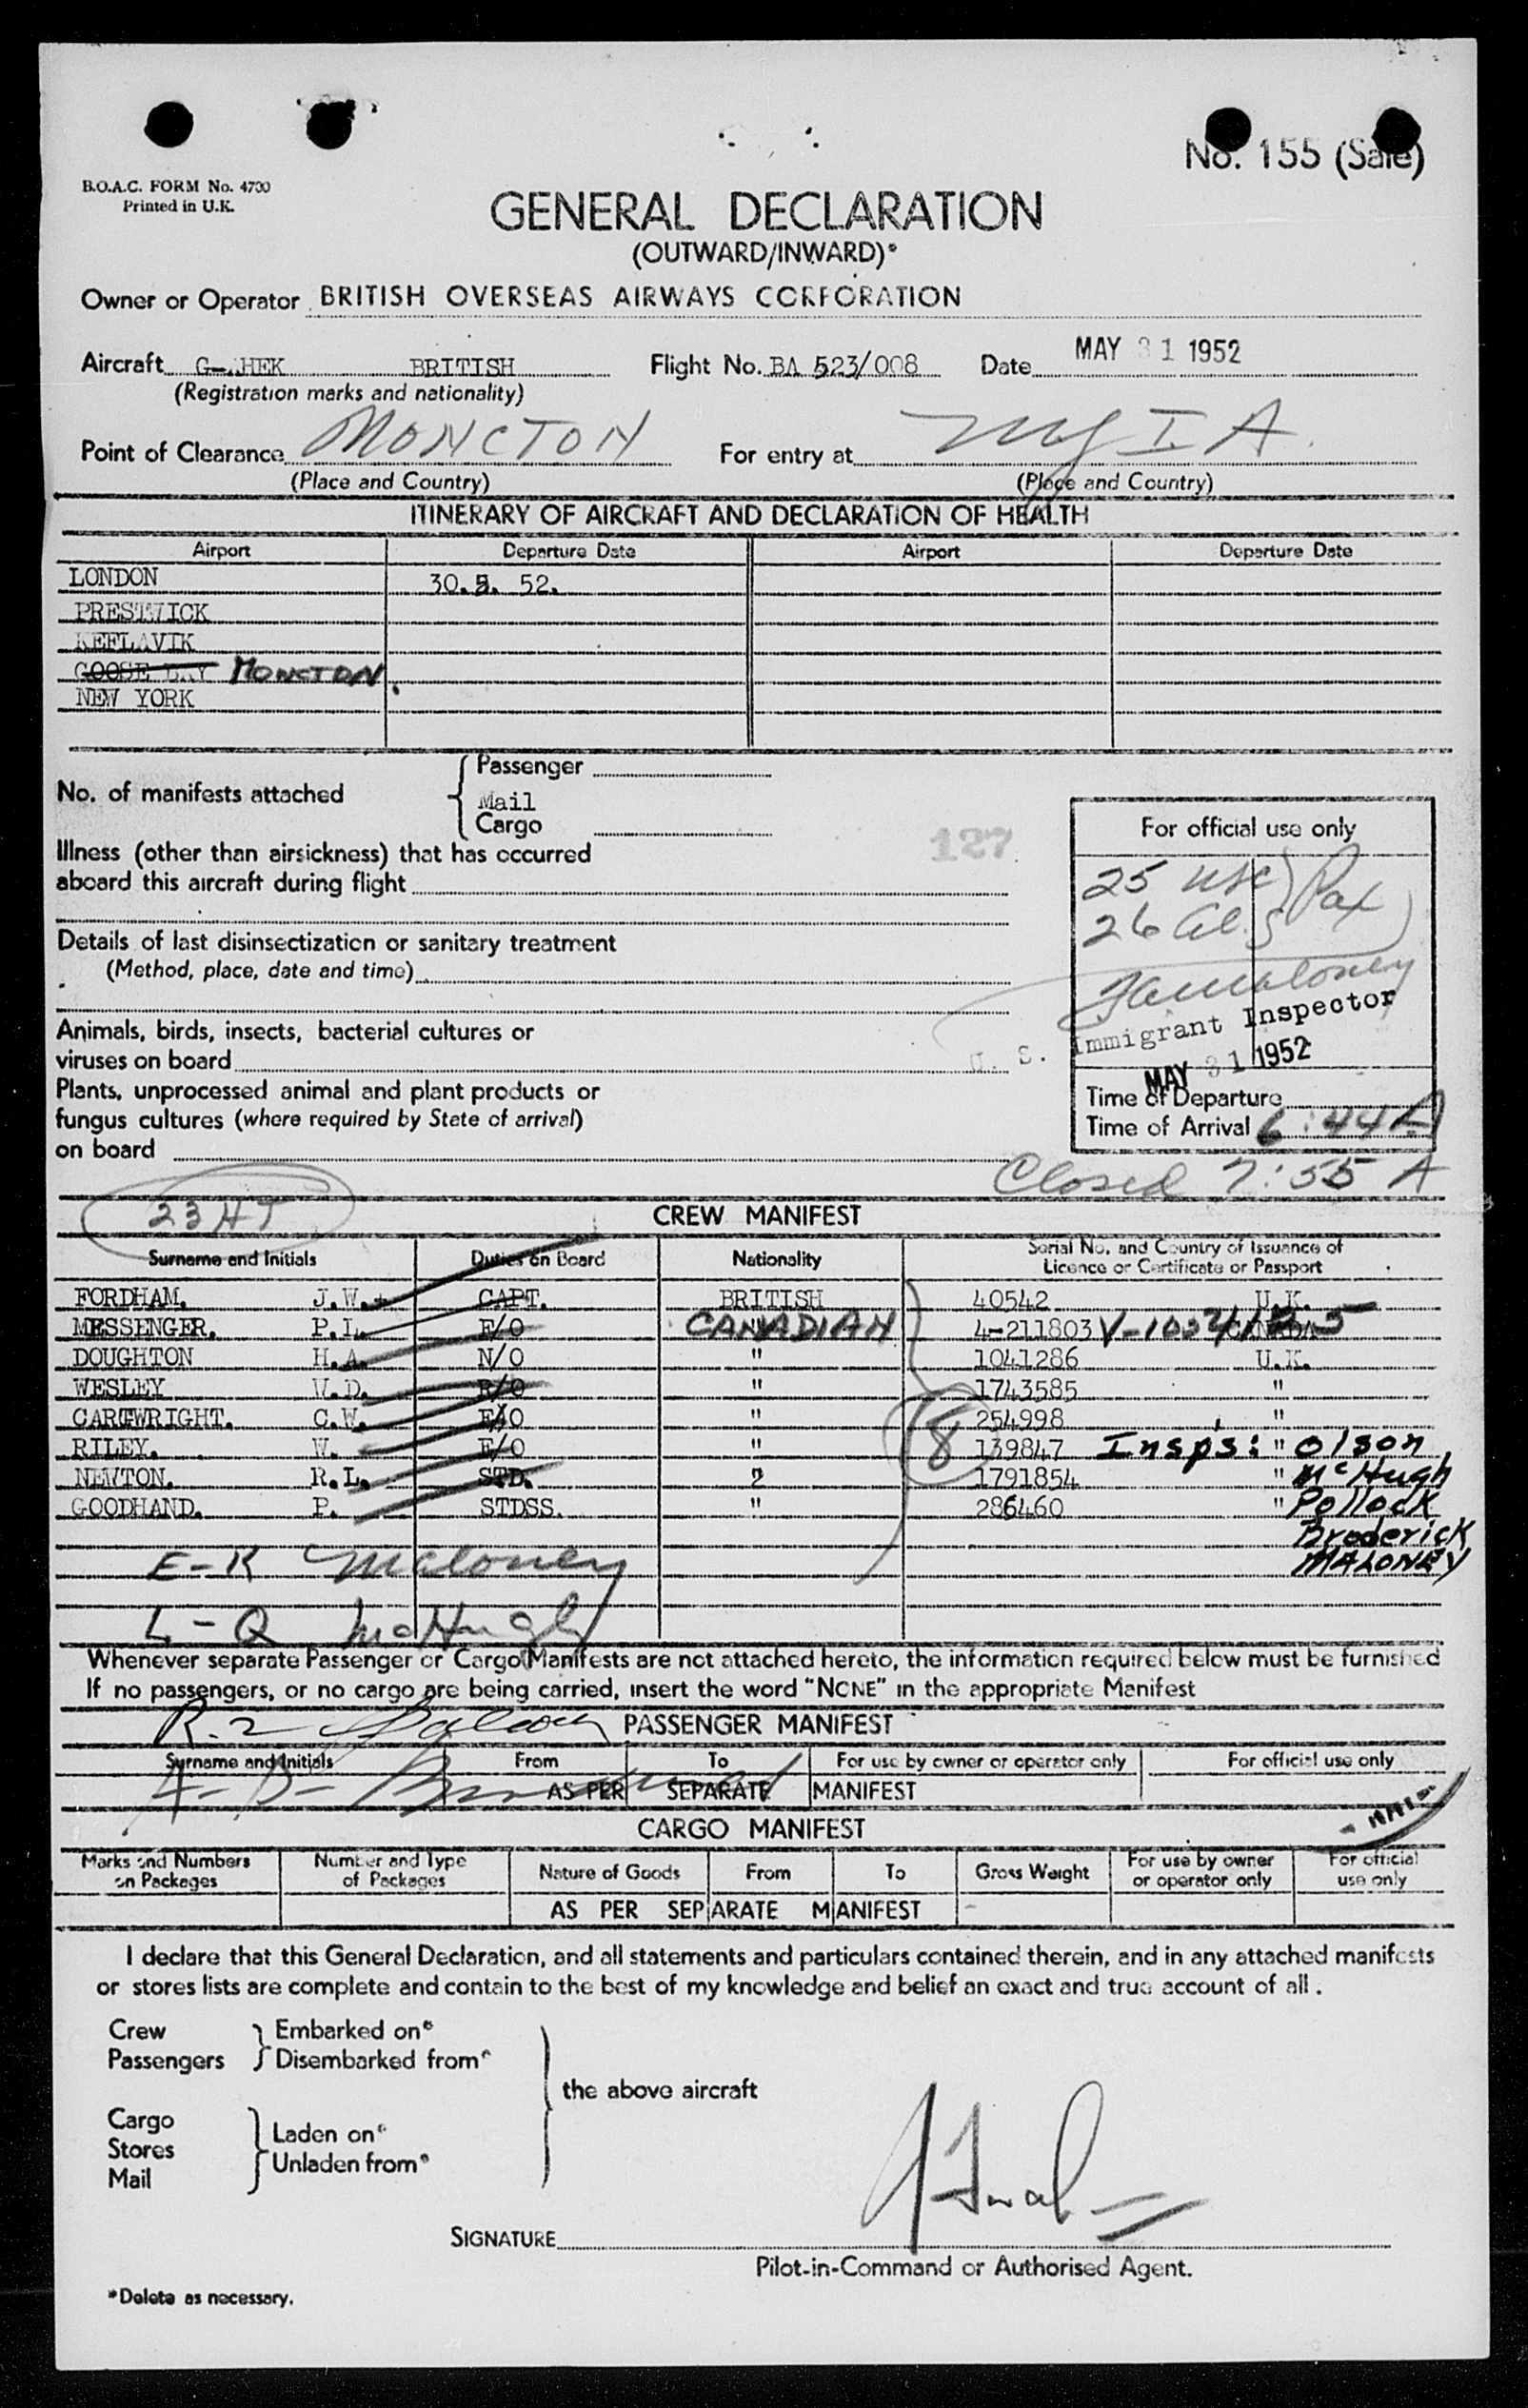 No. 155 (Sale)
B.O.A.C. FORM No. 4700
Printed in U.K.
GENERAL DECLARATION
(OUTWARD/INWARD)*
Owner or Operator BRITISH OVERSEAS AIRWAYS CORPORATION
Aircraft G-AHEK BRITISH Flight No. BA 523/008 Date MAY 31 1952
(Registration marks and nationality)
Point of Clearance MONCTON For entry at NYIA
(Place and Country) (Place and Country)
ITINERARY OF AIRCRAFT AND DECLARATION OF HEALTH
Airport Departure Date Airport Departure Date
LONDON 30.5. 52.
PRESTWICK
KEFLAVIK
GOOSE BAY MONCTON.
NEW YORK
Passenger
No. of manifests attached
Mail
Cargo
127
For official use only
Illness (other than airsickness) that has occurred
aboard this aircraft during flight
25 usc
26 al. Pax
Details of last disinsectization or sanitary treatment
(Method, place, date and time)
Maloney
U. S. Immigrant Inspector
MAY 31 1952
Animals, birds, insects, bacterial cultures or
viruses on board
Plants, unprocessed animal and plant products or
fungus cultures (where required by State of arrival)
on board
Time of Departure
Time of Arrival 6:44A
Closed 7:55 A
23 HT
CREW MANIFEST
Surname and Initials Duties on Board Nationality Serial No. and Country of Issuance of
Licence or Certificate or Passport
FORDHAM. J.W. CAPT. BRITISH 40542 U.K.
MESSENGER. P.L. F/O CANADIAN 4-211803 CANADA
DOUGHTON H.A. N/O " 1041286 U.K.
WESLEY W.D. R/O " 1743585 "
CARTWRIGHT. C.W. E/O " 254998 "
RILEY. W. E/O " 139847 " Insps: Olson
NEWTON. R.L. STD. 2 1791854 " McHugh
GOODHAND. P. STDSS. " 286460 " Pollock
8
Broderick
MALONEY
E-K Maloney
L-Q McHugh
Whenever separate Passenger or Cargo Manifests are not attached hereto, the information required below must be furnished
If no passengers, or no cargo are being carried, insert the word "NONE" in the appropriate Manifest
R-Z
PASSENGER MANIFEST
Surname and Initials From To For use by owner or operator only For official use only
A-D
AS PER SEPARATE MANIFEST
CARGO MANIFEST
Marks and Numbers on Packages Number and Type of Packages Nature of Goods From To Gross Weight For use by owner or operator only For official use only
AS PER SEPARATE MANIFEST
I declare that this General Declaration, and all statements and particulars contained therein, and in any attached manifests
or stores lists are complete and contain to the best of my knowledge and belief an exact and true account of all.
Crew Embarked on*
Passengers Disembarked from*
the above aircraft
Cargo
Stores Laden on*
Mail Unladen from*
SIGNATURE
Pilot-in-Command or Authorised Agent.
*Delete as necessary.